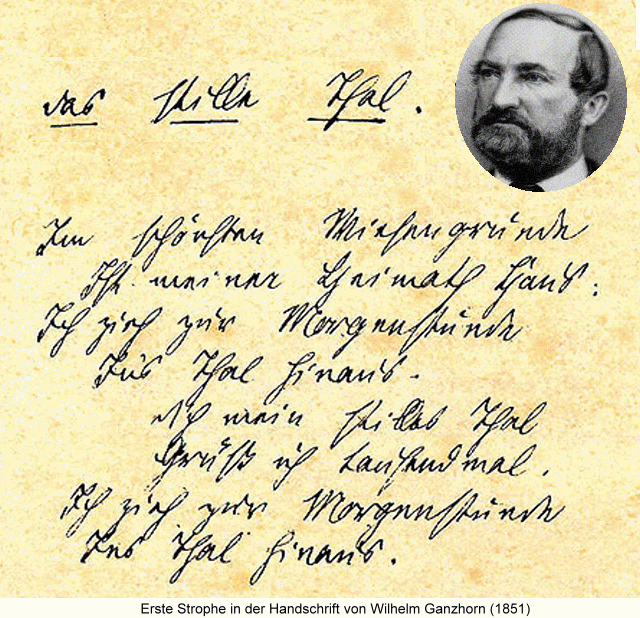 das stille Thal.
Im schönsten Wiesengrunde
Ist meiner Heimath Haus:
Ich zieh zur Morgenstunde
Ins Thal hinaus.
Dich mein stilles Thal
Grüß ich tausendmal.
Ich zieh zur Morgenstunde
Ins Thal hinaus.
Erste Strophe in der Handschrift von Wilhelm Ganzhorn (1851)